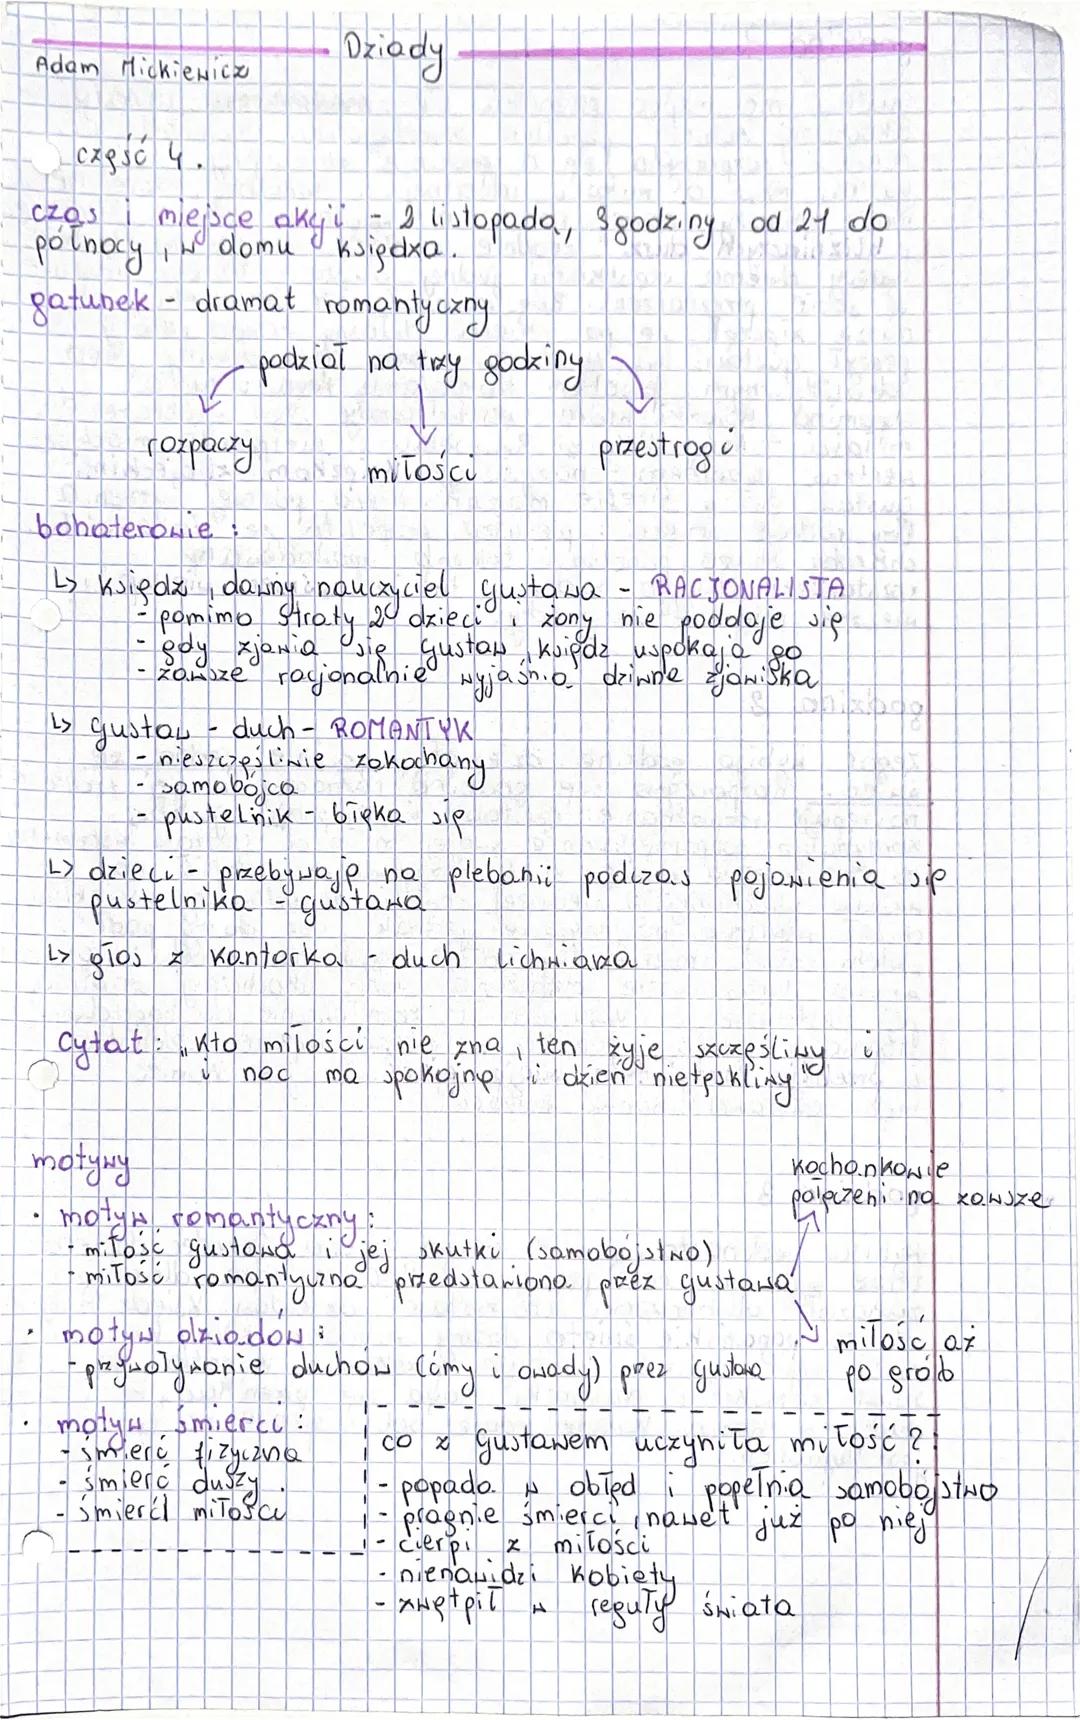 Dziady
Adam Mickiewicz
część 4.
czas i miejsce akcji - 2 listopada, 3 godziny od 21 do
północy, w domu księdza.
gatunek - dramat romantyczny
podział na trzy godziny
rozpaczy
miłości
przestrogi
bohaterowie :
↳ ksiądz, dawny nauczyciel Gustawa - RACJONALISTA
- pomimo straty 2 dzieci i żony nie poddaje się
- gdy zjawia się Gustaw, ksiądz uspokaja go
- zawsze racjonalnie wyjaśnia dziwne zjawiska
↳ Gustaw - duch - ROMANTYK
- nieszczęśliwie zakochany
- samobójca
- pustelnik - błąka się
↳ dzieci - przebywają na plebanii podczas pojawienia się
pustelnika - Gustawa
↳ głos z kantorka - duch lichwiarza
Cytat : „Kto miłości nie zna, ten żyje szczęśliwy i
i noc ma spokojną i dzień nietęskliwy"
motywy
kochankowie
połączeni na zawsze
• motyw romantyczny :
- miłość Gustawa i jej skutki (samobójstwo)
- miłość romantyczna przedstawiona przez Gustawa
• motyw dziadów :
miłość aż
- przywoływanie duchów (ćmy i owady) przez Gustawa
po grób
• motyw śmierci :
- śmierć fizyczna
- śmierć duszy
- śmierć miłości
co z Gustawem uczyniła miłość?
- popada w obłęd i popełnia samobójstwo
- pragnie śmierci, nawet już po niej
- cierpi z miłości
- nienawidzi kobiety
- zwątpił w reguły świata